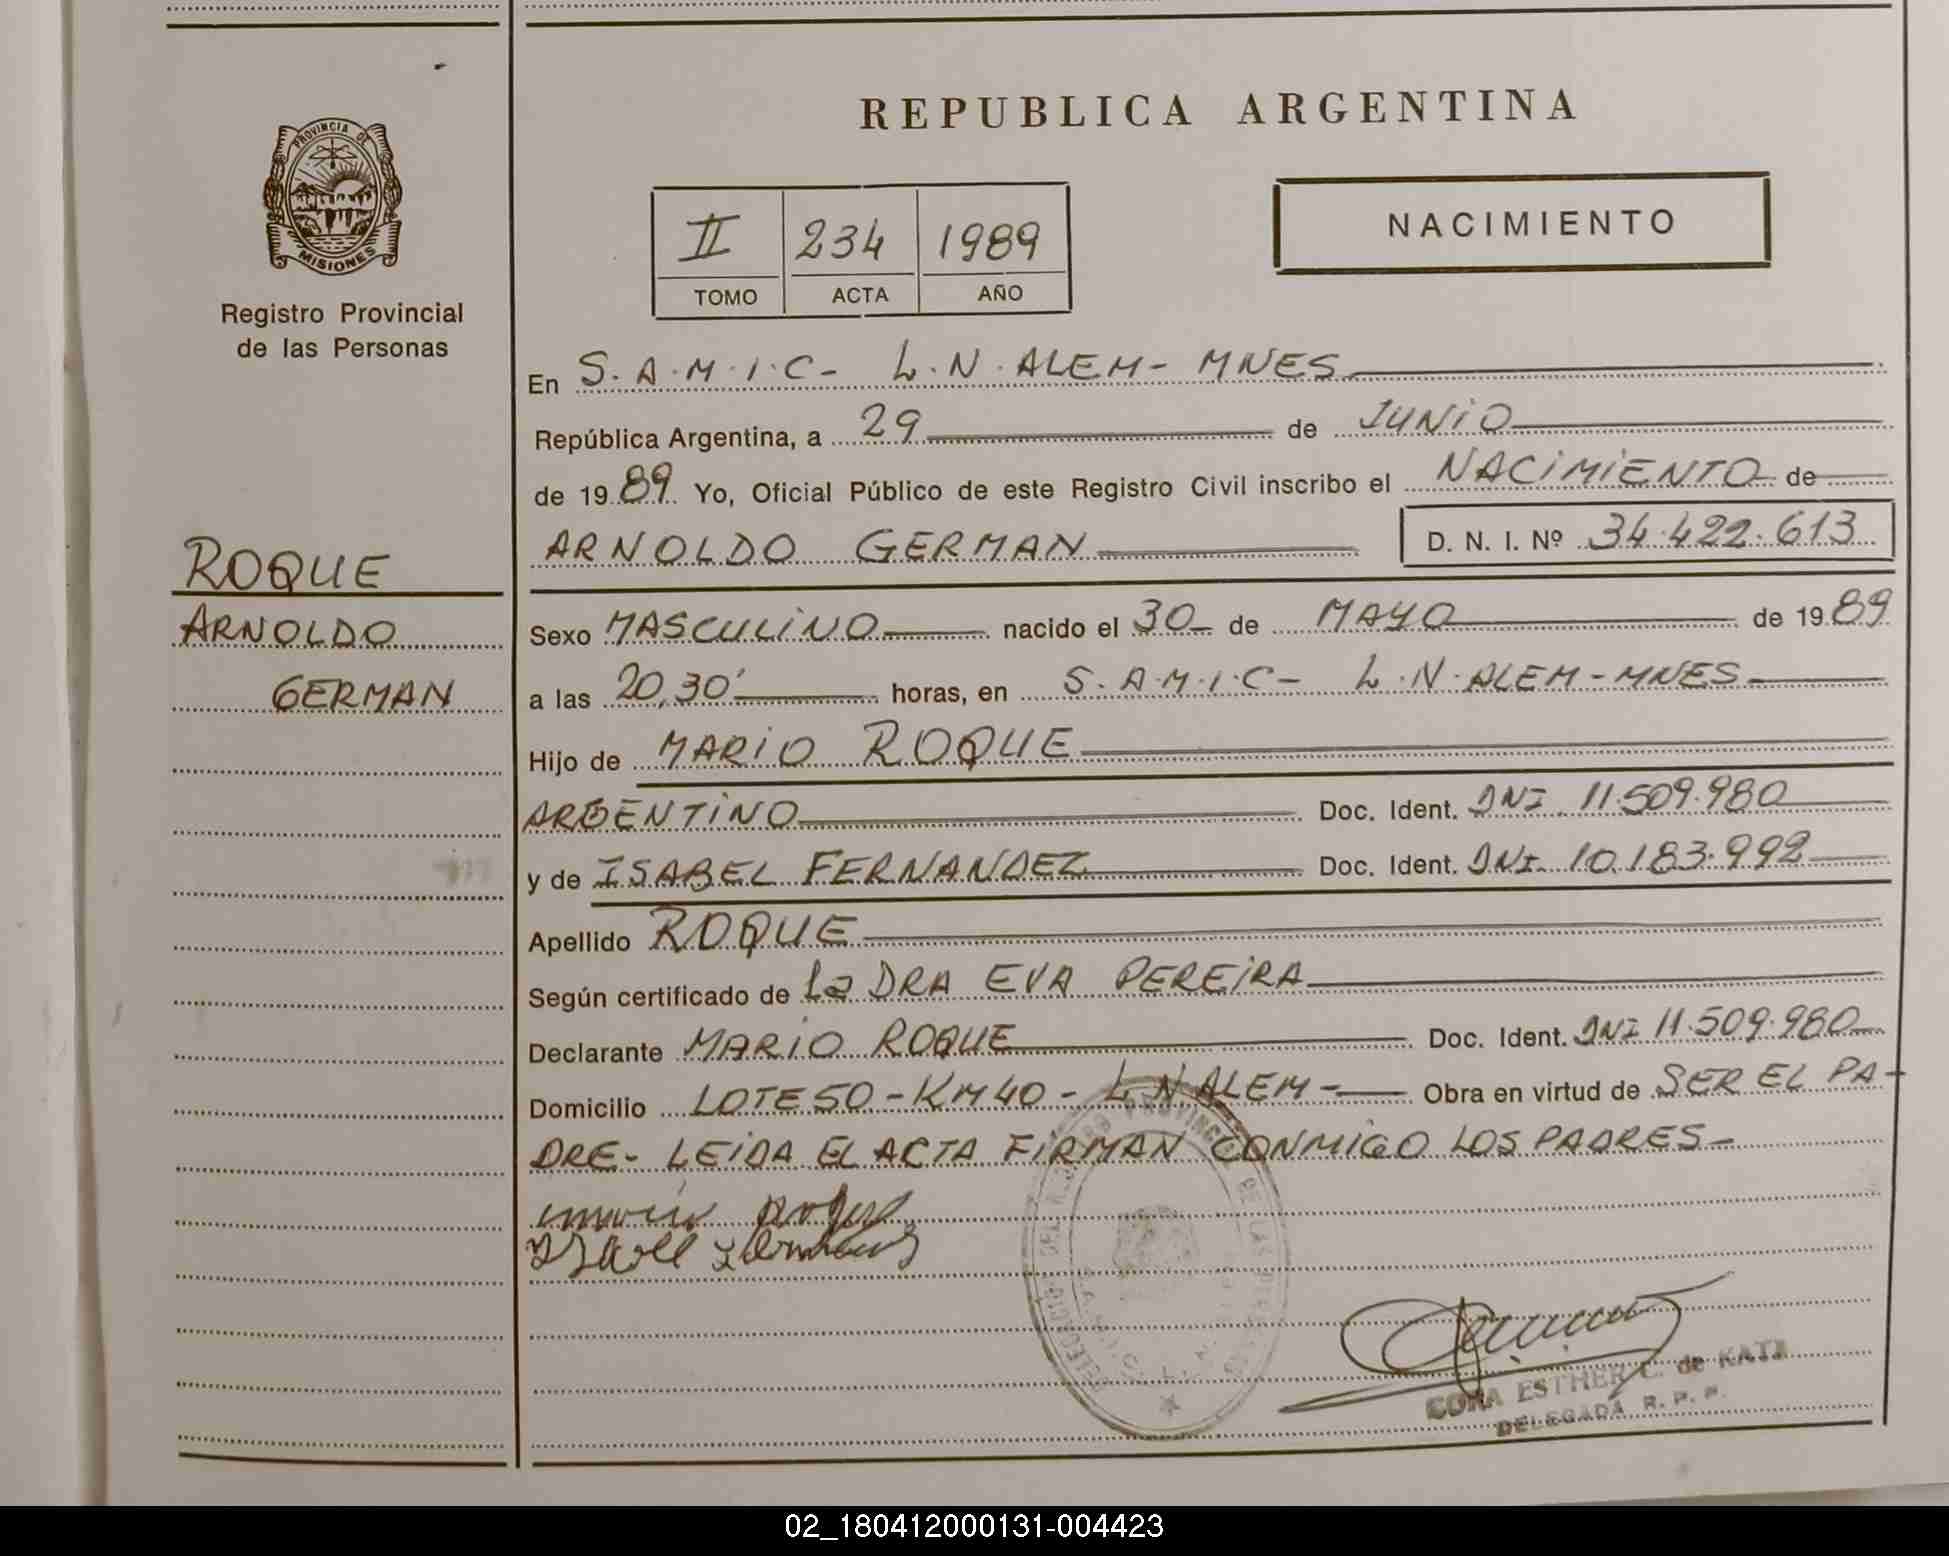 PROVINCIA DE
MISIONES
Registro Provincial
de las Personas
ROQUE
ARNOLDO
GERMAN
REPUBLICA ARGENTINA
II 234 1989
TOMO ACTA AÑO
NACIMIENTO
En S.A.M.I.C- L.N.ALEM- MNES
República Argentina, a 29 de JUNIO
de 1989 Yo, Oficial Público de este Registro Civil inscribo el NACIMIENTO de
ARNOLDO GERMAN D. N. I. Nº 34.422.613
Sexo MASCULINO nacido el 30 de MAYO de 1989
a las 20,30' horas, en S.A.M.I.C- L.N.ALEM-MNES
Hijo de MARIO ROQUE
ARGENTINO Doc. Ident. DNI 11.509.980
y de ISABEL FERNANDEZ Doc. Ident. DNI 10.183.992
Apellido ROQUE
Según certificado de La DRA EVA PEREIRA
Declarante MARIO ROQUE Doc. Ident. DNI 11.509.980
Domicilio LOTE 50-KM 40- L N ALEM- Obra en virtud de SER EL PA-
DRE- LEIDA EL ACTA FIRMAN CONMIGO LOS PADRES-
mario Roque
CORA ESTHER C. de KATZ
DELEGADA R. P. P.
02_180412000131-004423